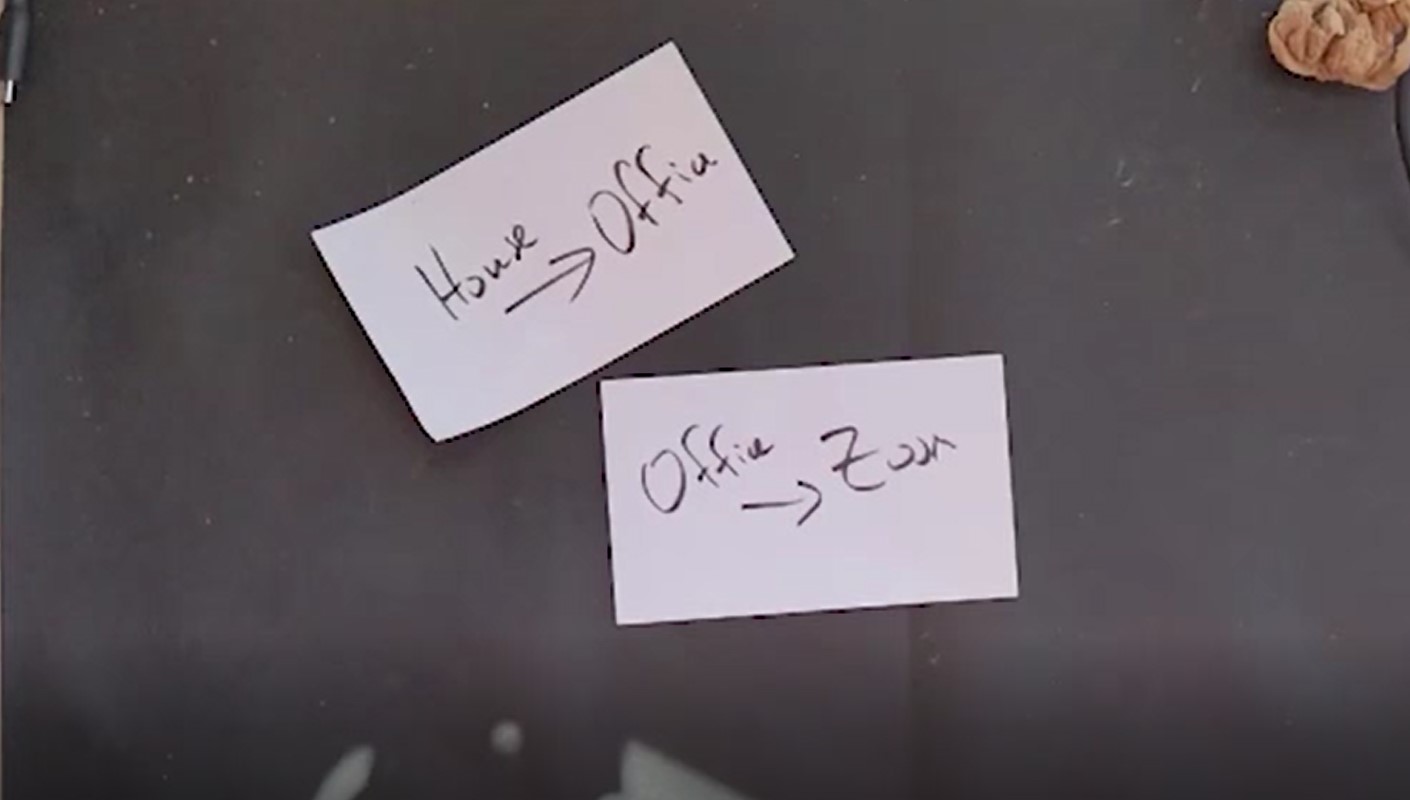 House → Office
Office → Zoom